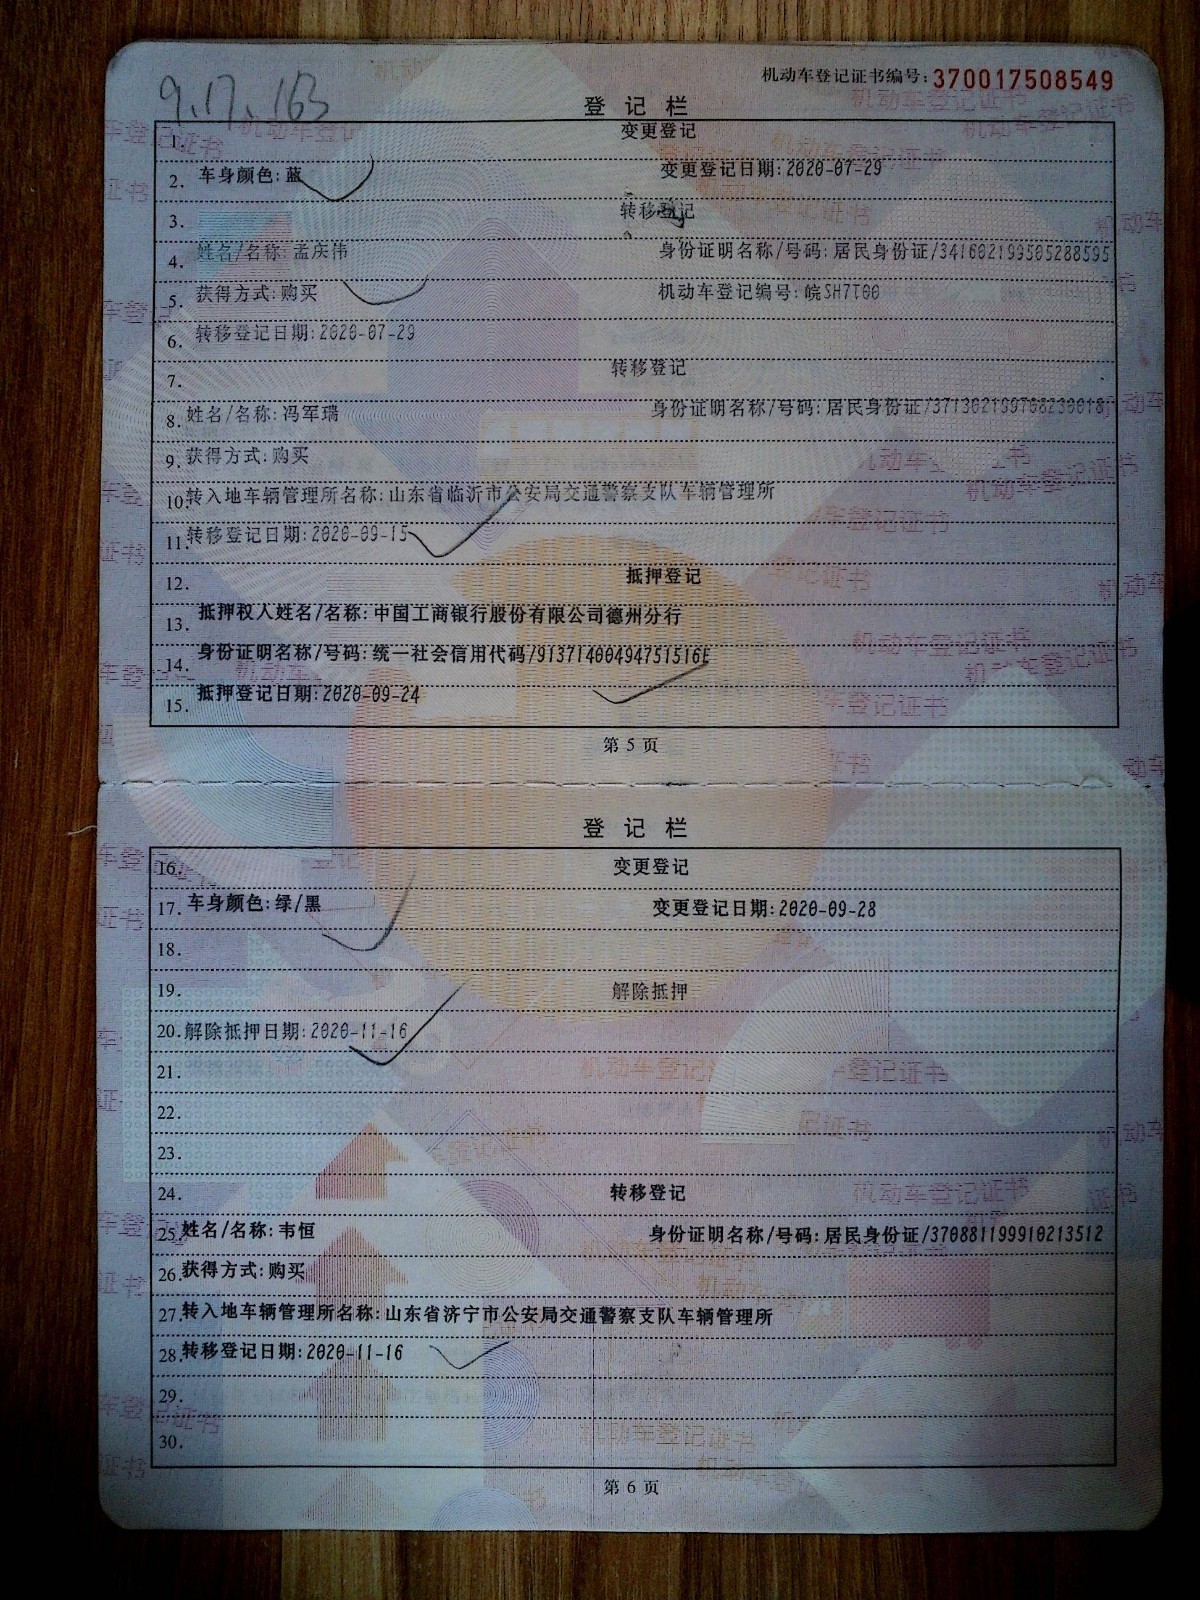 9.17.163
机动车登记证书编号:370017508549
登 记 栏
1. 变更登记
2. 车身颜色:蓝 变更登记日期:2020-07-29
3. 转移登记
4. 姓名/名称:孟庆伟 身份证明名称/号码:居民身份证/341602199505288595
5. 获得方式:购买 机动车登记编号:皖SH7T00
6. 转移登记日期:2020-07-29
7. 转移登记
8. 姓名/名称:冯军瑞 身份证明名称/号码:居民身份证/371302199708230018
9. 获得方式:购买
10. 转入地车辆管理所名称:山东省临沂市公安局交通警察支队车辆管理所
11. 转移登记日期:2020-09-15
12. 抵押登记
13. 抵押权人姓名/名称:中国工商银行股份有限公司德州分行
14. 身份证明名称/号码:统一社会信用代码/91371400494751516E
15. 抵押登记日期:2020-09-24
第 5 页
登 记 栏
16. 变更登记
17. 车身颜色:绿/黑 变更登记日期:2020-09-28
18.
19. 解除抵押
20. 解除抵押日期:2020-11-16
21.
22.
23.
24. 转移登记
25. 姓名/名称:韦恒 身份证明名称/号码:居民身份证/370881199910213512
26. 获得方式:购买
27. 转入地车辆管理所名称:山东省济宁市公安局交通警察支队车辆管理所
28. 转移登记日期:2020-11-16
29.
30.
第 6 页